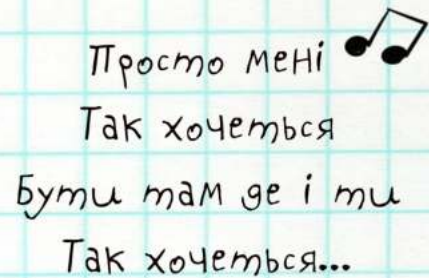 Просто мені
Так хочеться
Бути там де і ти
Так хочеться...